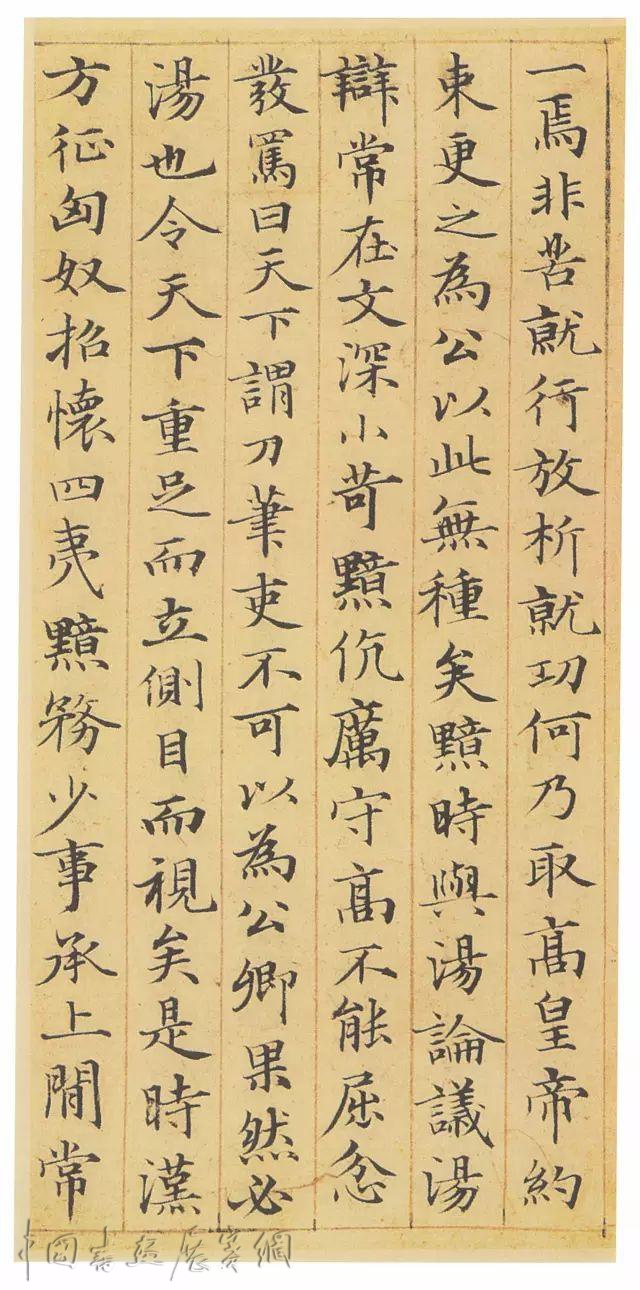 一焉非苦就行放析就功何乃取髙皇帝約
束更之為公以此無種矣黯時與湯論議湯
辯常在文深小苛黯伉厲守髙不能屈忿
發罵曰天下謂刀筆吏不可以為公卿果然必
湯也令天下重足而立側目而視矣是時漢
方征匈奴招懷四夷黯務少事承上間常
中國書法展賽網